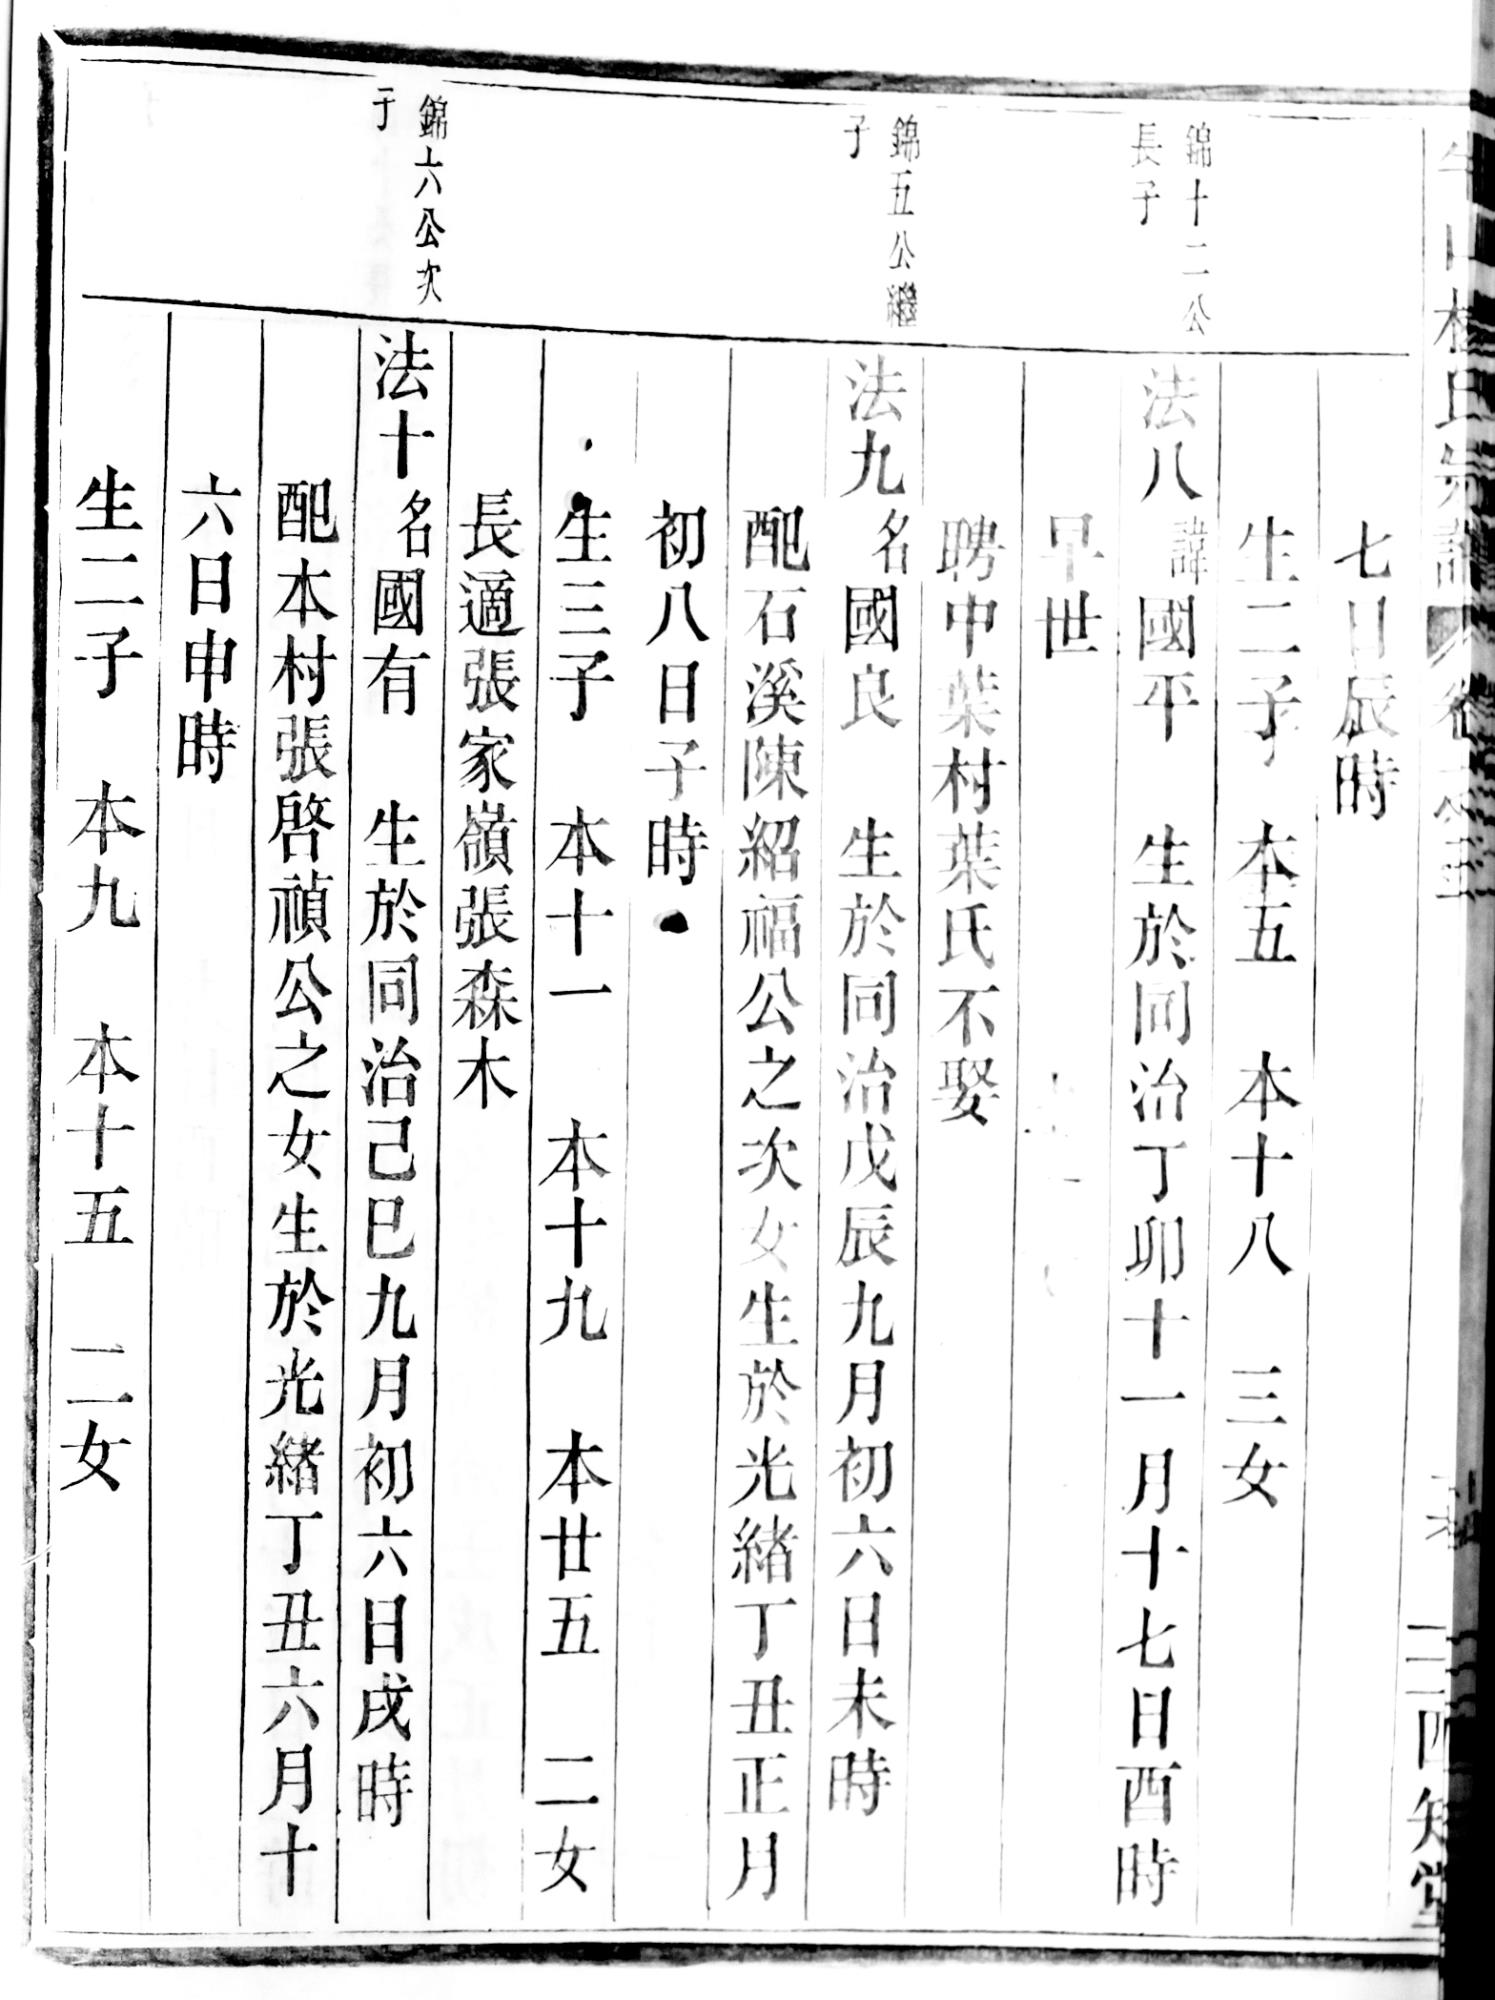 七日辰時
生二子 本五 本十八 三女
錦十二公
長子
法八 諱國平 生於同治丁卯十一月十七日酉時
早世
聘中葉村葉氏不娶
錦五公繼
子
法九 名國良 生於同治戊辰九月初六日未時
配石溪陳紹福公之次女生於光緒丁丑正月
初八日子時
生三子 本十一 本十九 本廿五 二女
長適張家嶺張森木
錦六公次
子
法十 名國有 生於同治己巳九月初六日戌時
配本村張啓禎公之女生於光緒丁丑六月十
六日申時
生二子 本九 本十五 二女